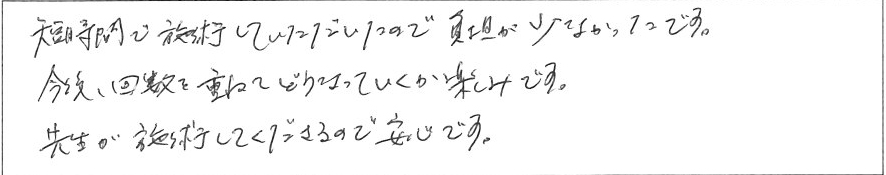 短時間で施術していただいたので負担が少なかったです。
今後、回数を重ねてどうなっていくか楽しみです。
先生が施術してくださるので安心です。